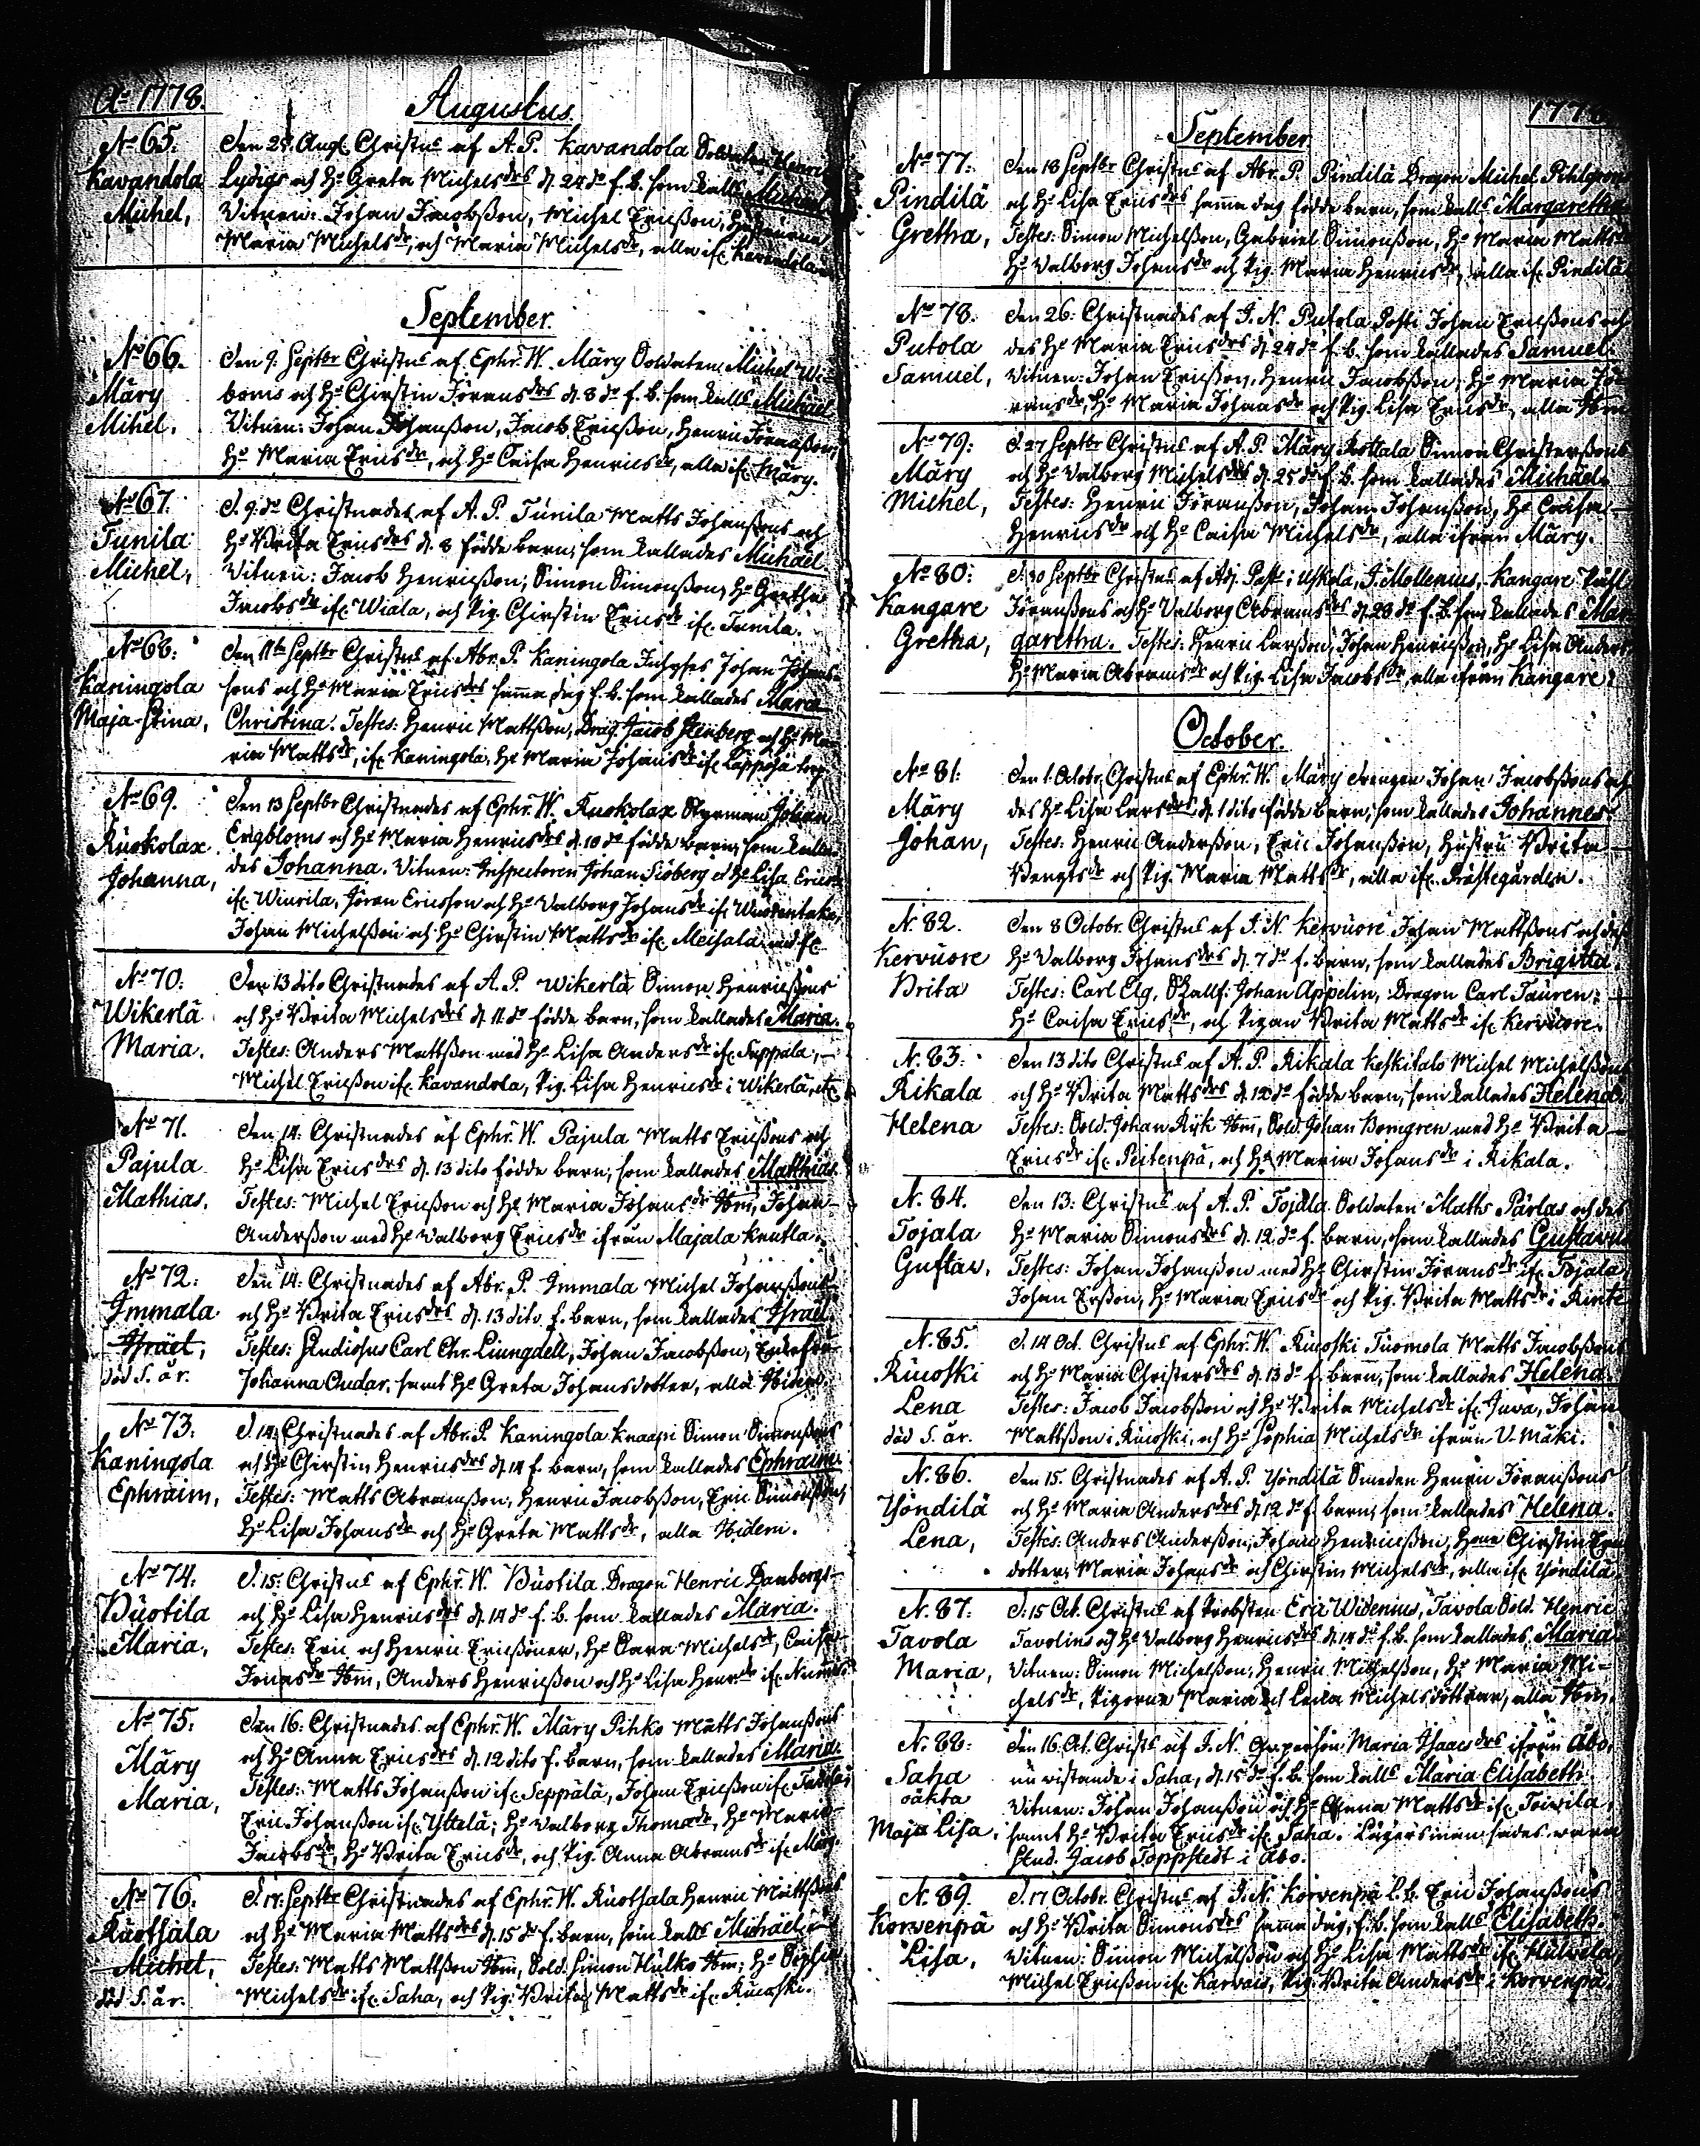 Ao 1778.
Augustus.
No 65.
Kavandola
Michel,
Den 25. Aug. Christns af A. P. Kavandola Soldaten Henric
Lydigs och Ho Greta Michelsdrs d. 24 do f. b. som kalls Michael
Vitnen: Johan Jacobsson, Michel Ericsson, Hustrurna
Maria Michelsdr, och Maria Michelsdr, alla ifr. Kavandola
September.
No 66.
Märy
Mihel.
Den 9. Septbr Christns af Ephr. W. Märy Soldaten Michel Wi-
boms och Ho Chirstin Jöransdrs d. 8 do f. b. som kalls Michael
Vitnen: Johan Johansson, Jacob Ericsson, Henric Jöransson,
Ho Maria Ericsdr, och Ho Caisa Henricsdr, alla ifr. Märy.
No 67.
Tunila
Michel,
D. 9. do Christnades af A. P. Tunila Matts Johanssons och
Ho Brita Ericsdrs d. 8 födde barn, som kallades Michael.
Vitnen: Jacob Henricsson, Simon Simonsson, Ho Gretha
Jacobsdr ifr. Wiala, och Pig. Chirstin Ericsdr ifr. Tunila.
No 68.
Kaningola
Maja-Stina,
Den 11te Septbr Christns af Abr. P. Kaningola Inhyses Johan Johans-
sons och Ho Maria Ericsdrs samma dag f. b. som kallades Maria
Christina. Testes: Henric Mattsson, Drag. Jacob Stenberg och Ho Ma-
ria Mattsdr, ifr. Kaningola, Ho Maria Johansdr ifr. Lappoja torp.
No 69.
Ruokolax
Johanna,
Den 13 Septbr Christnades af Ephr. W. Ruokolax Styrman Johan
Engbloms och Ho Maria Henricsdrs d. 10 do födde barn, som kalla-
des Johanna. Vitnen: Inspectoren Johan Siöberg och Ho Lisa Ericsdr
ifr. Winrila, Jöran Ericsson och Ho Valborg Johansdr ifr. Wuorentaka,
Johan Michelsson och Ho Chirstin Mattsdr ifr. Meisala
No 70.
Wikerlä
Maria.
Den 13 dito Christnades af A. P. Wikerlä Simon Henricssons
och Ho Brita Michelsdrs d. 11. do födde barn, som kallades Maria.
Testes: Anders Mattsson med Ho Lisa Andersdr ifr. Sappala,
Michel Ericsson ifr. Kavandola, Pig. Lisa Henricsdr i Wikerlä, etc.
No 71.
Pajula
Mathias.
Den 14: Christnades af Ephr. W. Pajula Matts Ericssons och
Ho Lisa Ericsdrs d. 13 dito födde barn, som kallades Matthias.
Testes: Michel Ericsson och Ho Maria Johansdr Ibm, Johan
Andersson med Ho Valborg Ericsdr ifrån Majala Knutla.
No 72:
Immala
Israel,
död S. år.
Den 14: Christnades af Abr. P. Immala Michel Johanssons
och Ho Brita Ericsdrs d. 13 dito f. barn, som kallades Israel.
Testes: Studiosus Carl Chr. Liungdell, Johan Jacobsson,
Johanna Oudar, samt Ho Greta Johansdotter, alla Ibidem.
No 73:
Kaningola
Ephraim,
D. 14: Christnades af Abr. P. Kaningola Knaapi Simon Simonssons
och Ho Chirstin Henricsdrs d. 14 f. barn, som kallades Ephraim.
Testes: Matts Abramsson, Henric Jacobsson, Eric Simonsson,
Ho Lisa Johansdr och Ho Greta Mattsdr, alla Ibidem.
No 74:
Buotila
Maria,
D. 15: Christns af Ephr. W. Buotila Dragon Henric Bambergs
och Ho Lisa Henricsdrs d. 14 do f. b. som kallades Maria.
Testes: Eric och Henric Ericssöner, Ho Clara Michelsdr, Caisa
Jonasdr Ibm, Anders Henricsson och Ho Lisa Henr.dr ifr.
No 75:
Märy
Maria,
Den 16: Christnades af Ephr. W. Märy Pihko Matts Johanssons
och Ho Anna Ericsdrs d. 12 dito f. barn, som kallades Maria.
Testes: Matts Johansson ifr. Seppälä, Johan Ericsson ifr.
Eric Johansson ifr. Yltelä; Ho Valborg Thomadr, Ho Maria
Jacobsdr, Ho Brita Ericsdr, och Pig. Anna Abramsdr ifr. Märy.
No 76:
Ruotsala
Michel,
död S. år.
D. 17: Septbr Christnades af Ephr. W. Ruotsala Henric Mattssons
och Ho Maria Mattsdrs d. 15 do f. barn, som kalls Michael.
Testes: Matts Mattsson Ibm, Sold. Simon Hulko Ibm; Ho Sophia
Michelsdr ifr. Saha, och Pig. Brita Mattsdr ifr. Ruoski.
1778.
September
No 77:
Pindilä
Gretha,
Den 18 Septbr Christns af Abr. P. Pindilä Dragon Michel Pihlgrens
och Ho Lisa Ericsdrs samma dag födde barn, som kalls Margaretha.
Testes: Simon Michelsson, Gabriel Simonsson, Ho Maria Mattsdr
Ho Valborg Johansdr och Pig. Maria Henricsdr, alla ifr. Pindilä
No 78.
Putola
Samuel,
Den 26: Christnades af J. N. Putola Posti Johan Ericssons och
des Ho Maria Ericsdrs d. 24 do f. b. som kallades Samuel.
Vitnen: Johan Ericsson, Henric Jacobsson, Ho Maria Jö-
ransdr, Ho Maria Johansdr och Pig. Lisa Ericsdr, alla Ibm
No 79:
Märy
Michel,
D. 27 Septbr Christns af A. P. Märy Kottala Simon Christerssons
och Ho Valborg Michelsdrs d. 25 do f. b. som kallades Michael.
Testes: Henric Jöransson, Johan Johansson, Ho Caisa
Henricsdr och Ho Caisa Michelsdr, alla ifrån Märy.
No 80:
Kangare
Gretha,
D. 30 Septbr Christns af Adj. Past. i Uskela, J. Mollenius, Kangare
Jöranssons och Ho Valborg Abramsdrs d. 28 do f. b. som kallades Mar-
garetha. Testes: Henric Larsson, Johan Henricsson, Ho Lisa Andersdr
Ho Maria Abramsdr och Pig. Lisa Jacobsdr, alla ifrån Kangare.
October.
No 81:
Märy
Johan,
Den 1. Octobr. Christns af Ephr. W. Märy drengen Johan Jacobssons och
des Ho Lisa Larsdrs d. 1 dito födde barn, som kallades Johannes.
Testes: Henric Andersson, Eric Johansson, Hustru Brita
Bengtsdr och Pig. Maria Mattsdr, alla ifr. Prästegården.
N. 82.
Kervuore
Brita
Den 8 Octobr. Christns af J. N. Kervuore Johan Mattssons och des
Ho Valborg Johansdrs d. 7 do f. barn, som kallades Brigitta.
Testes: Carl Elg, Johan Appelin, Dragon Carl Tauren,
Ho Caisa Ericsdr, och Pigan Brita Mattsdr ifr. Kervuore.
N. 83:
Rikala
Helena
Den 13 dito Christns af A. P. Rikala Keskitalo Michel Michelssons
och Ho Brita Mattsdrs d. 12 do födde barn, som kallades Helena.
Testes: Sold. Johan Rijk Ibm, Sold. Johan Bomgren med Ho Brita
Ericsdr ifr. Peitenpä, och Ho Maria Johansdr i Rikala.
N. 84.
Tojala
Gustav.
Den 13: Christns af A. P. Tojala Soldaten Matts Pärlas och des
Ho Maria Simonsdrs d. 12. do f. barn, som kallades Gustavus
Testes: Johan Johansson med Ho Chirstin Jöransdr ifr. Tojala,
Johan Ersson, Ho Maria Ericsdr och Pig. Brita Mattsdr i
N. 85.
Ruoski
Lena
död S. år.
D. 14 Oct. Christns af Ephr. W. Ruoski Tuomola Matts Jacobssons
och Ho Maria Christersdrs d. 13 do f. barn, som kallades Helena.
Testes: Jacob Jacobsson och Ho Brita Michelsdr ifr. Juva, Johan
Mattsson i Ruoski, och Ho Sophia Michelsdr ifrån V. Mäki.
N. 86.
Yöndilä
Lena,
Den 15. Christnades af A. P. Yöndilä Smeden Henric Jöranssons
och Ho Maria Andersdrs d. 12 do f. barn, som kallades Helena.
Testes: Anders Andersson, Johan Henricsson, Chirstin Erics
dotter, Maria Johansdr och Chirstin Michelsdr, alla ifr. Yöndilä.
N. 87:
Tavola
Maria,
D. 15 Oct. Christns af Probsten Eric Widenius, Tavola Sold. Henric
Tavolins och Ho Valborg Henricsdrs d. 14 do f. b. som kallades Maria.
Vitnen: Simon Michelsson, Henric Michelsson, Ho Maria Mi-
chelsdr, Pigorna Maria och Leena Michelsdöttrar, alla Ibm.
N. 88:
Saha
oäkta
Maja Lisa.
Den 16. Oct. Christs af J. N. Qv.person Maria Isaacsdrs ifrån Åbo,
nu vistande i Saha, d. 15 do f. b. som kalls Maria Elisabeth.
Vitnen: Johan Johansson och Ho Anna Mattsdr ifr. Toivila,
samt Ho Brita Ericsdr ifr. Saha. Lägersman sades wara
Stud. Jacob Toppstedt i Åbo.
N. 89.
Korvenpä
Lisa,
D. 17 Octobr. Christns af J. N. Korvenpä L. b. Eric Johanssons
och Ho Brita Simonsdrs samma dag f. b. som kalls Elisabeth.
Vitnen: Simon Michelsson och Ho Lisa Mattsdr ifr. Hulvela,
Michel Ericsson ifr. Karvais, Pig. Brita Andersdr i Korvenpä.